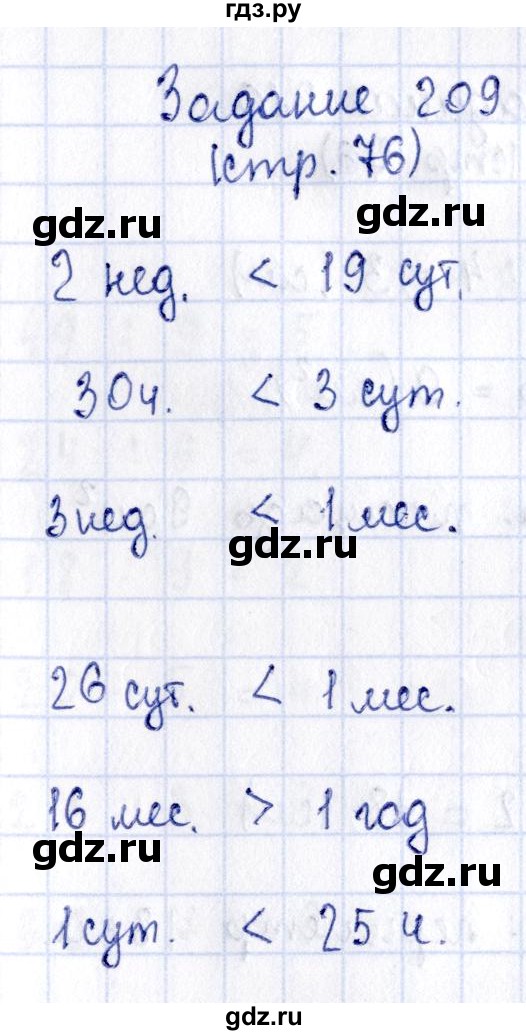 гдз.ру
Задание 209
(стр. 76)
gdz.ru gdz.ru
2 нед. < 19 сут.
30ч. < 3 сут.
3нед. < 1 мес.
gdz.ru
26 сут. < 1 мес.
16 мес. > 1 год
gdz.ru gdz.ru
1 сут. < 25 ч.
gdz.ru